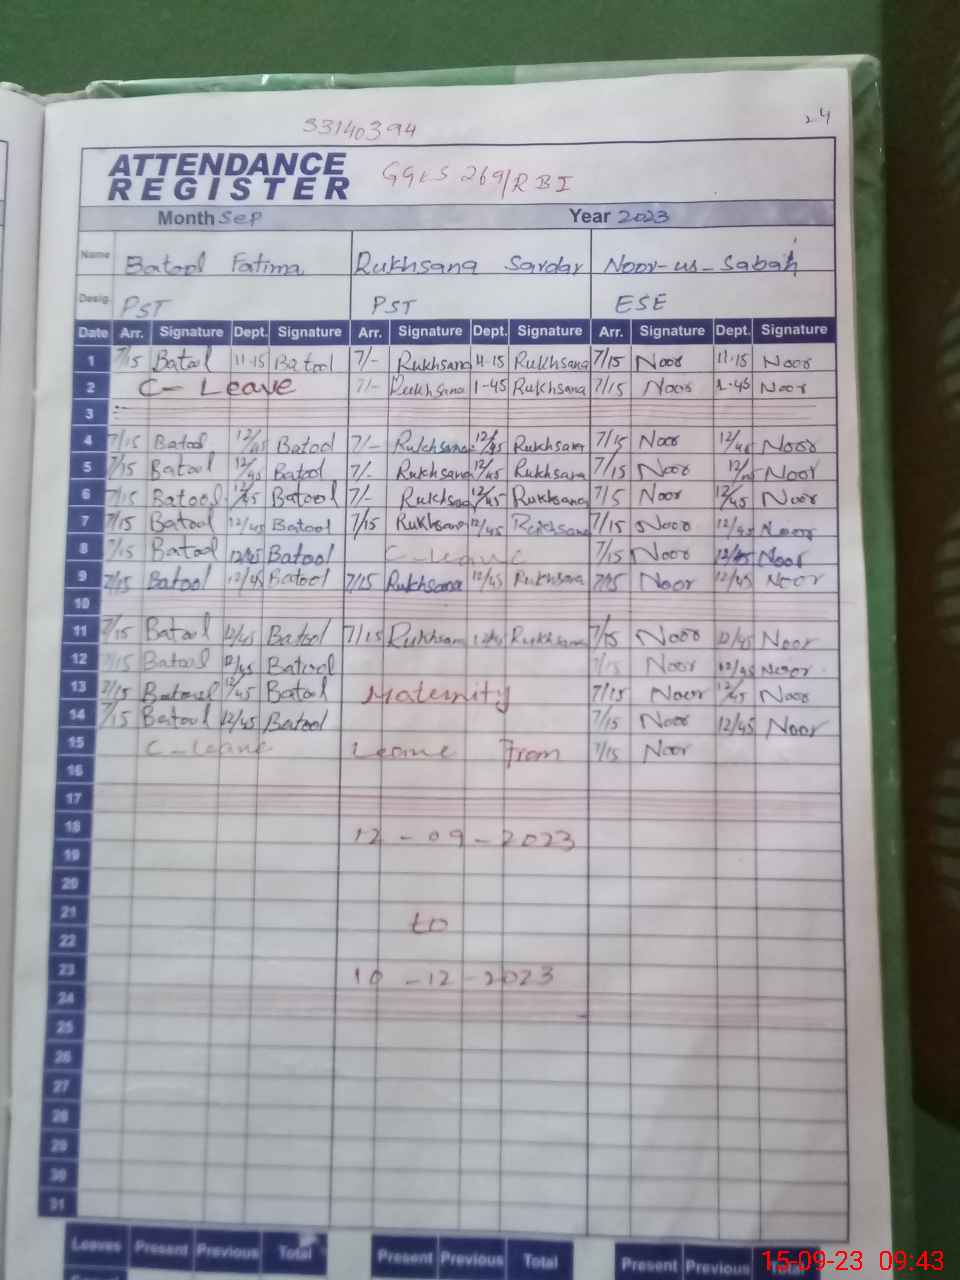 33140394
24
ATTENDANCE
REGISTER
GGES 269/RBI
Month Sep Year 2023
Name Batool Fatima Rukhsana Sardar Noor-us-Sabah
Desig. PST PST ESE
Date Arr. Signature Dept. Signature Arr. Signature Dept. Signature Arr. Signature Dept. Signature
1 7/15 Batool 11-15 Batool 7/- Rukhsana 11-15 Rukhsana 7/15 Noor 11-15 Noor
2 C-Leave 7/- Rukhsana 1-45 Rukhsana 7/15 Noor 1-45 Noor
3
4 7/15 Batool 12/45 Batool 7/- Rukhsana 12/45 Rukhsana 7/15 Noor 12/45 Noor
5 7/15 Batool 12/45 Batool 7/- Rukhsana 12/45 Rukhsana 7/15 Noor 12/45 Noor
6 7/15 Batool 12/45 Batool 7/- Rukhsana 12/45 Rukhsana 7/5 Noor 12/45 Noor
7 7/15 Batool 12/45 Batool 7/15 Rukhsana 12/45 Rukhsana 7/15 Noor 12/45 Noor
8 7/15 Batool 12/45 Batool C-Leave 7/15 Noor 12/45 Noor
9 7/15 Batool 12/45 Batool 7/15 Rukhsana 12/45 Rukhsana 7/15 Noor 12/45 Noor
10
11 7/15 Batool 12/45 Batool 7/15 Rukhsana 12/45 Rukhsana 7/15 Noor 12/45 Noor
12 7/15 Batool 12/45 Batool 7/15 Noor 12/45 Noor
13 7/15 Batool 12/45 Batool Maternity 7/15 Noor 12/45 Noor
14 7/15 Batool 12/45 Batool 7/15 Noor 12/45 Noor
15 C-Leave Leave From 7/15 Noor
16
17
18 12-09-2023
19
20
21 to
22
23 10-12-2023
24
25
26
27
28
29
30
31
Leaves Present Previous Total Present Previous Total Present Previous Total
15-09-23 09:43